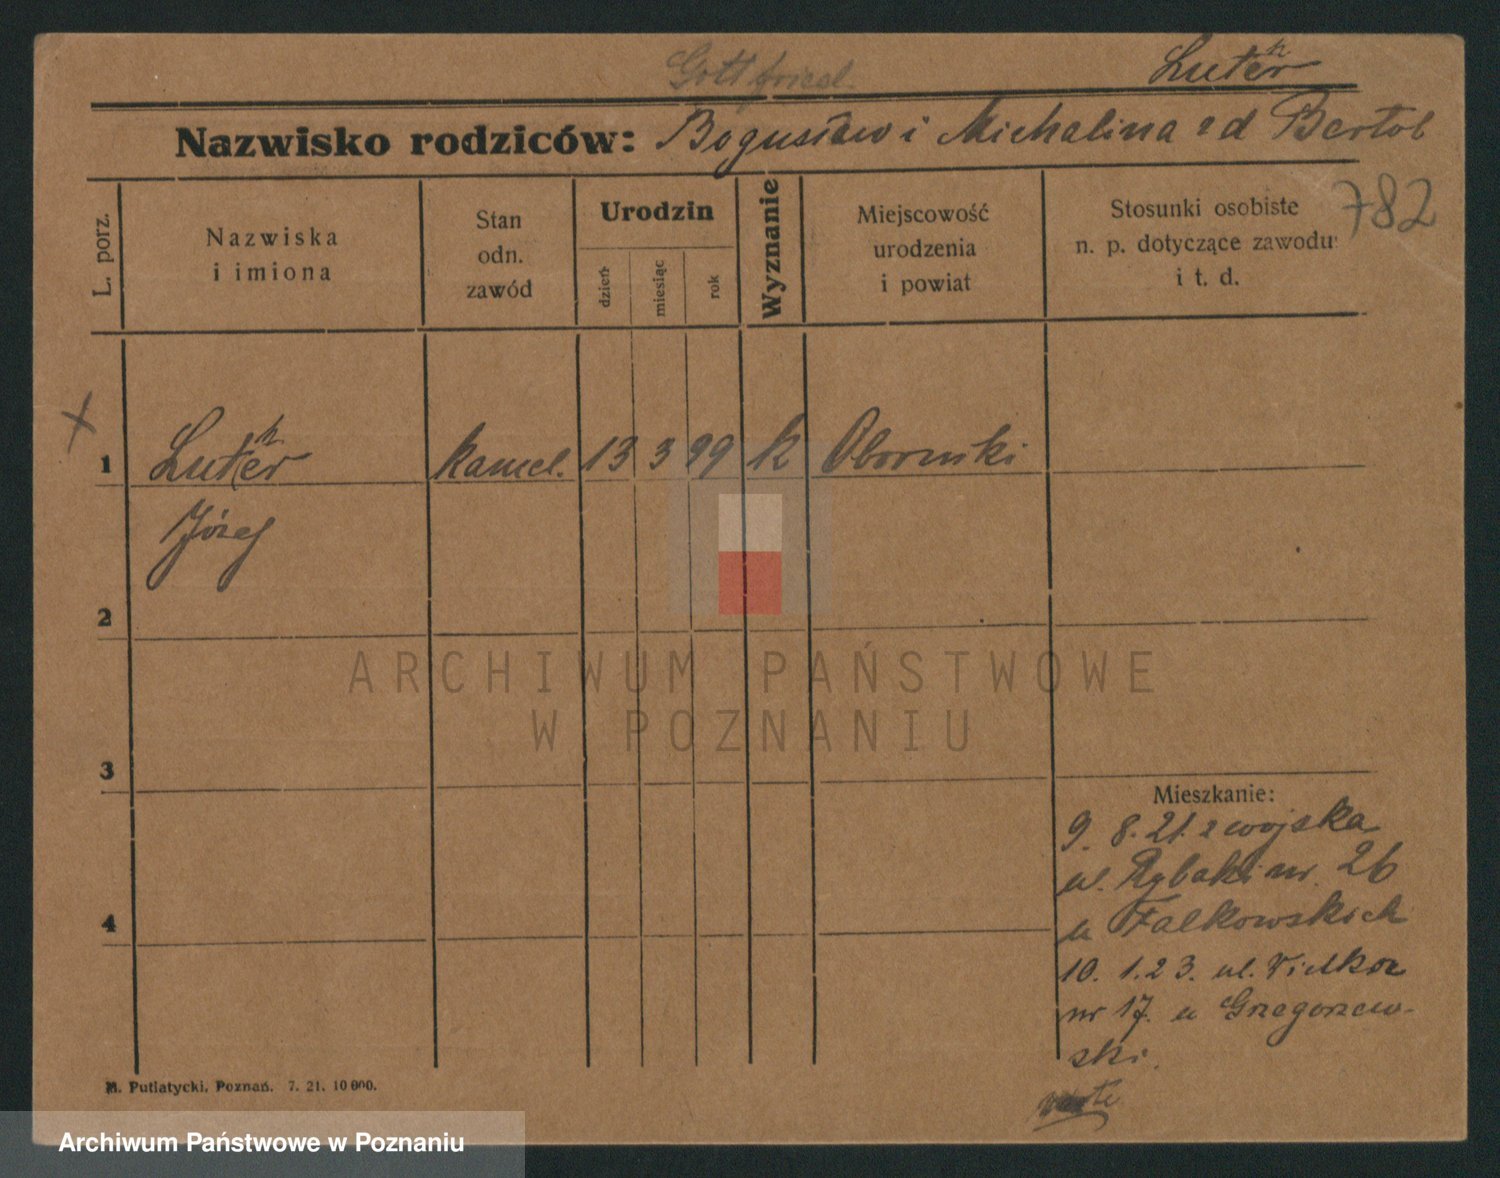 Gottfried
Luther
Nazwisko rodziców: Bogusław i Michalina zd Bertol
782
L. porz.
Nazwiska
i imiona
Stan
odn.
zawód
Urodzin
dzień
miesiąc
rok
Wyznanie
Miejscowość
urodzenia
i powiat
Stosunki osobiste
n. p. dotyczące zawodu
i t. d.
x
1 Luther kawel. 13 3 99 k Oborniki
Józef
2
3
4
Mieszkanie:
9. 8. 21. z wojska
ul. Rybaki nr. 26
u Falkowskich
10. 1. 23. ul.
nr 17. u Grzegorzew-
ski.
M. Putiatycki, Poznań. 7. 21. 10 000.
ARCHIWUM PAŃSTWOWE
W POZNANIU
Archiwum Państwowe w Poznaniu